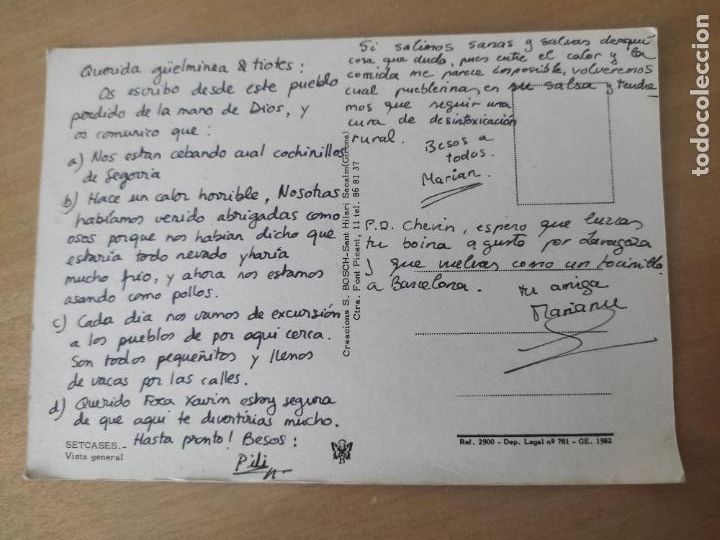 Querida güelminea & tiotes:
Os escribo desde este pueblo
perdido de la mano de Dios, y
os comunico que:
a) Nos estan cebando cual cochinillos
de Segovia
b) Hace un calor horrible, Nosotras
habíamos venido abrigadas como
osos porque nos habían dicho que
estaría todo nevado y haría
mucho frío, y ahora nos estamos
asando como pollos.
c) Cada dia nos vamos de excursión
a los pueblos de por aqui cerca.
Son todos pequeñitos y llenos
de vacas por las calles.
d) Querido Foca Xavim estoy segura
de que aqui te divertirias mucho.
Hasta pronto! Besos:
Pili
SETCASES.-
Vista general
Creacions S. BOSCH-Sant Hilari Sacalm (Girona)
Ctra. Font Picant, 11 tel. 86 81 37
Si salimos sanas y salvas de aquí
cosa que dudo, pues entre el calor y la
comida me parece imposible, volveremos
cual pueblerinas en su salsa y tendre
mos que seguir una
cura de desintoxicación
rural.
Besos a
todos.
Marian.
P.D. Chevin, espero que luzcas
tu boina a gusto por Zaragoza
y que vuelvas como un tocinillo
a Barcelona.
tu amiga
Ref. 2900 - Dep. Legal nº 781 - GE. 1982
todocoleccion